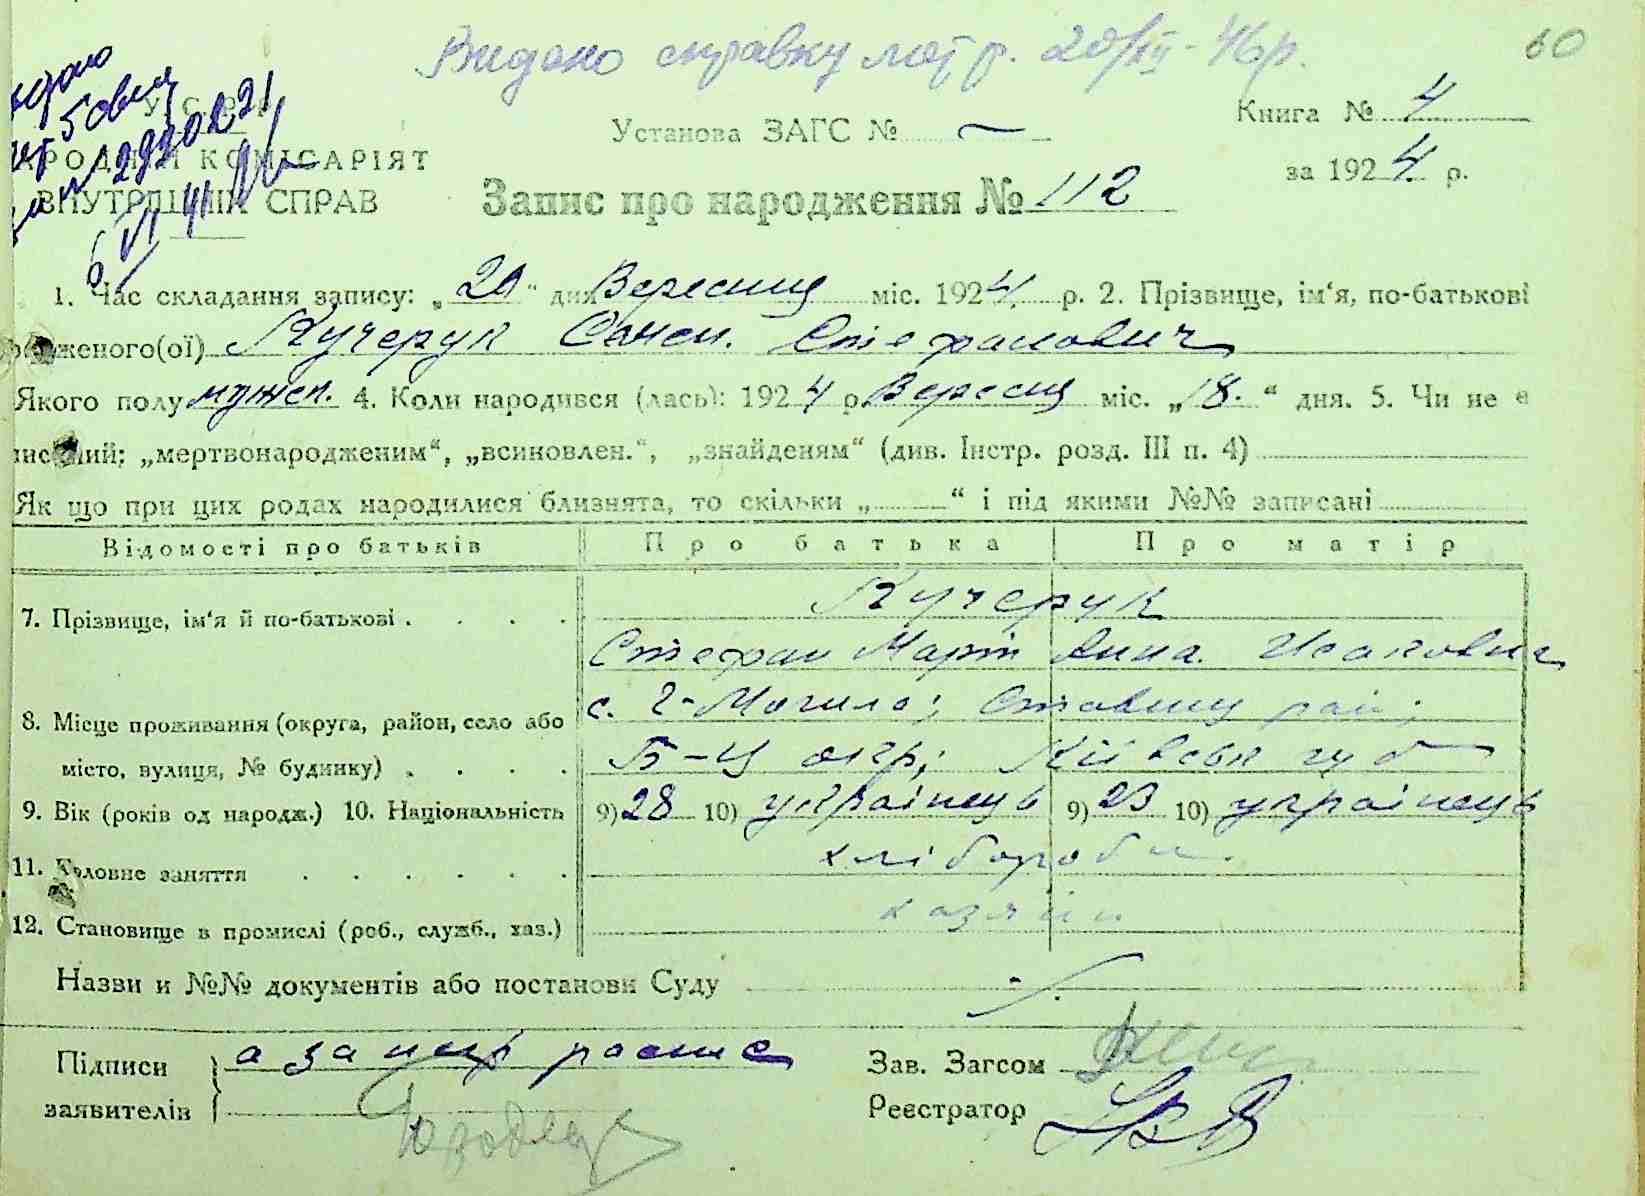 Видано справку 20/XII-46р.
60
У.С.Р.Р.
Установа ЗАГС №
Книга № 4
НАРОДНІЙ КОМІСАРІЯТ
ВНУТРІШНІХ СПРАВ
за 1924 р.
6/VI 41
Запис про народження № 112
1. Час складання запису: „20“ дня Вересня міс. 1924 р. 2. Прізвище, ім‘я, по-батькові
роженого(ої) Кучерук Стефанович
Якого полу мужеск. 4. Коли народився (лась): 1924 р. Вересня міс. „18.“ дня. 5. Чи не є
писаний: „мертвонародженим“, „всиновлен.“, „знайденям“ (див. Інстр. розд. III п. 4)
Як що при цих родах народилися близнята, то скільки „ “ і під якими №№ записані
Відомості про батьків Про батька Про матір
7. Прізвище, ім‘я й по-батькові . . . . Кучерук
Стефан Март Анна Исаковна
8. Місце проживання (округа, район, село або с. Г-Могила; Ставищ рай;
місто, вулиця, № будинку) . . . . Б-Ц окр; Київськ губ
9. Вік (років од народж.) 10. Національність 9) 28 10) українець 9) 23 10) українець
11. Головне заняття . . . . . . хлібороби
12. Становище в промислі (роб., служб., хаз.) хазяїн
Назви и №№ документів або постанови Суду
Підписи а за неї роспис
заявителів
Зав. Загсом
Реєстратор